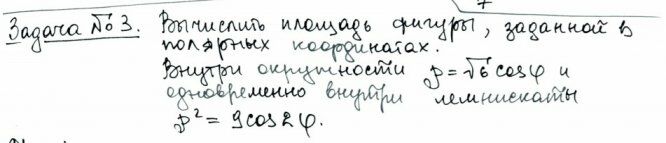 Задача №3. Вычислить площадь фигуры, заданной в
полярных координатах.
Внутри окружности ρ=√6 cosφ и
одновременно внутри лемнискаты
ρ²= 9cos2φ.